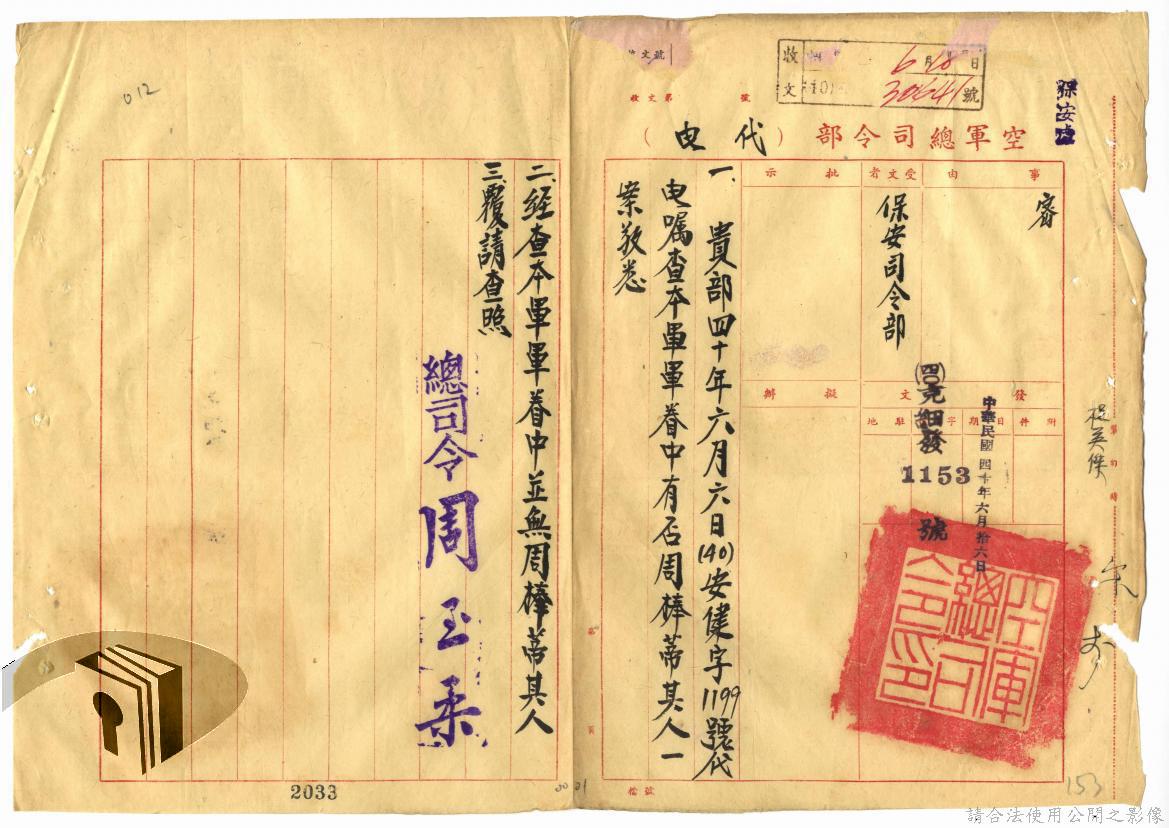 保安處
收 6月18日
文 30641號
收文第 號
空軍總司令部（代电）
事由
受文者
批示
密
保安司令部
發文
擬辦
附件
日期
字
駐地
中華民國四十年六月拾六日
(四〇)
細發
1153
號
空軍總司令印
一、貴部四十年六月六日(40)安健字1199號代
电嘱查本軍軍眷中有否周棒蒂其人一
案敬悉
二、經查本軍軍眷中並無周棒蒂其人
三、覆請查照
總司令周至柔
012
2033
153
檔號
請合法使用公開之影像